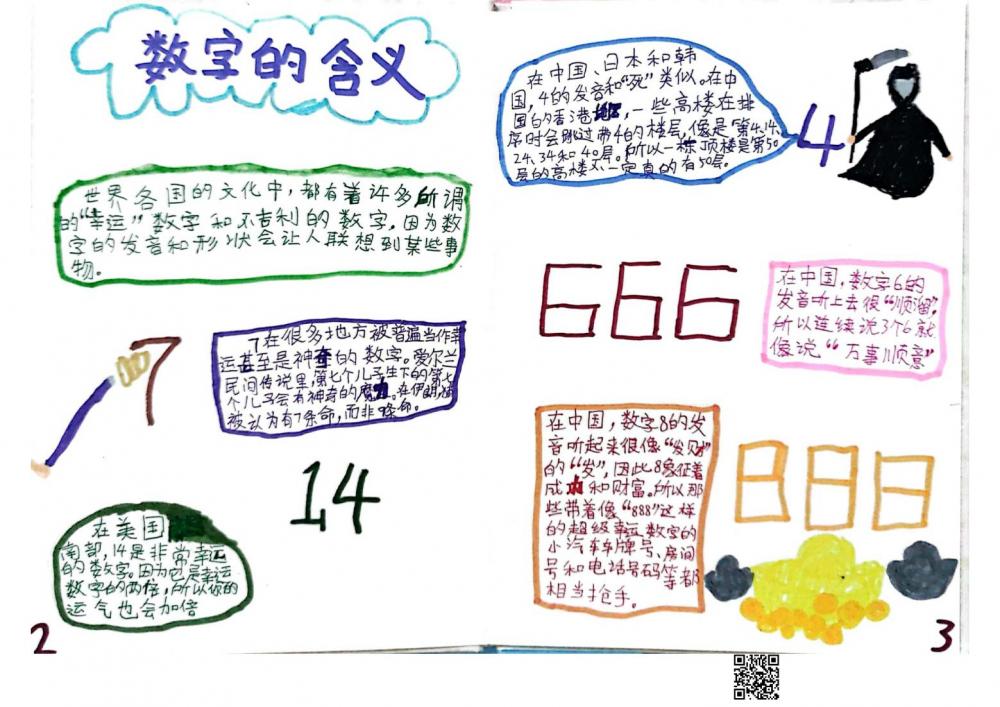 数字的含义
世界各国的文化中，都有着许多所谓
的“幸运”数字和不吉利的数字，因为数
字的发音和形状会让人联想到某些事
物。
7
7在很多地方被普遍当作幸
运甚至是神奇的数字。爱尔兰
民间传说里，第七个儿子生下的第七
个儿子会有神奇的魔力。在伊朗，猫
被认为有7条命，而非9条命。
14
在美国
南部，14是非常幸运
的数字。因为它是幸运
数字的两倍，所以你的
运气也会加倍
2
在中国、日本和韩
国，4的发音和“死”类似。在中
国的香港地区，一些高楼在排
序时会跳过带4的楼层，像是第4、14、
24、34和40层。所以一栋顶楼是第50
层的高楼不一定真的有50层。
4
666
在中国，数字6的
发音听上去很“顺溜”。
所以连续说3个6就
像说“万事顺意”
在中国，数字8的发
音听起来很像“发财”
的“发”，因此8象征着
成功和财富。所以那
些带着像“888”这样
的超级幸运数字的
小汽车车牌号、房间
号和电话号码等都
相当抢手。
888
3